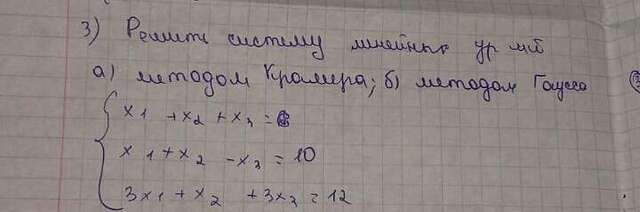 3) Решить систему линейных ур-ний
а) методом Крамера; б) методом Гаусса
x1 + x2 + x3 =
x1 + x2 - x3 = 10
3x1 + x2 + 3x3 = 12